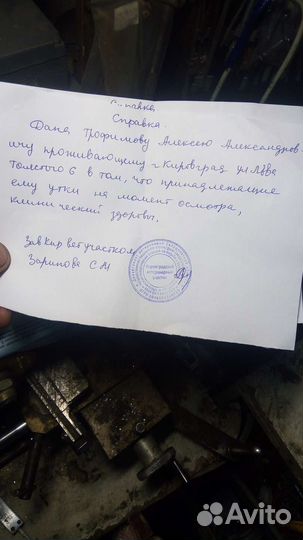 Справка.
Дана Трофимову Алексею Александров
ичу проживающему г Кировград ул Льва
Толстого 6 в том, что принадлежащие
ему утки на момент осмотра,
клинический здоровы.
Зав Кир ветучастком
Зарипова С М
Avito